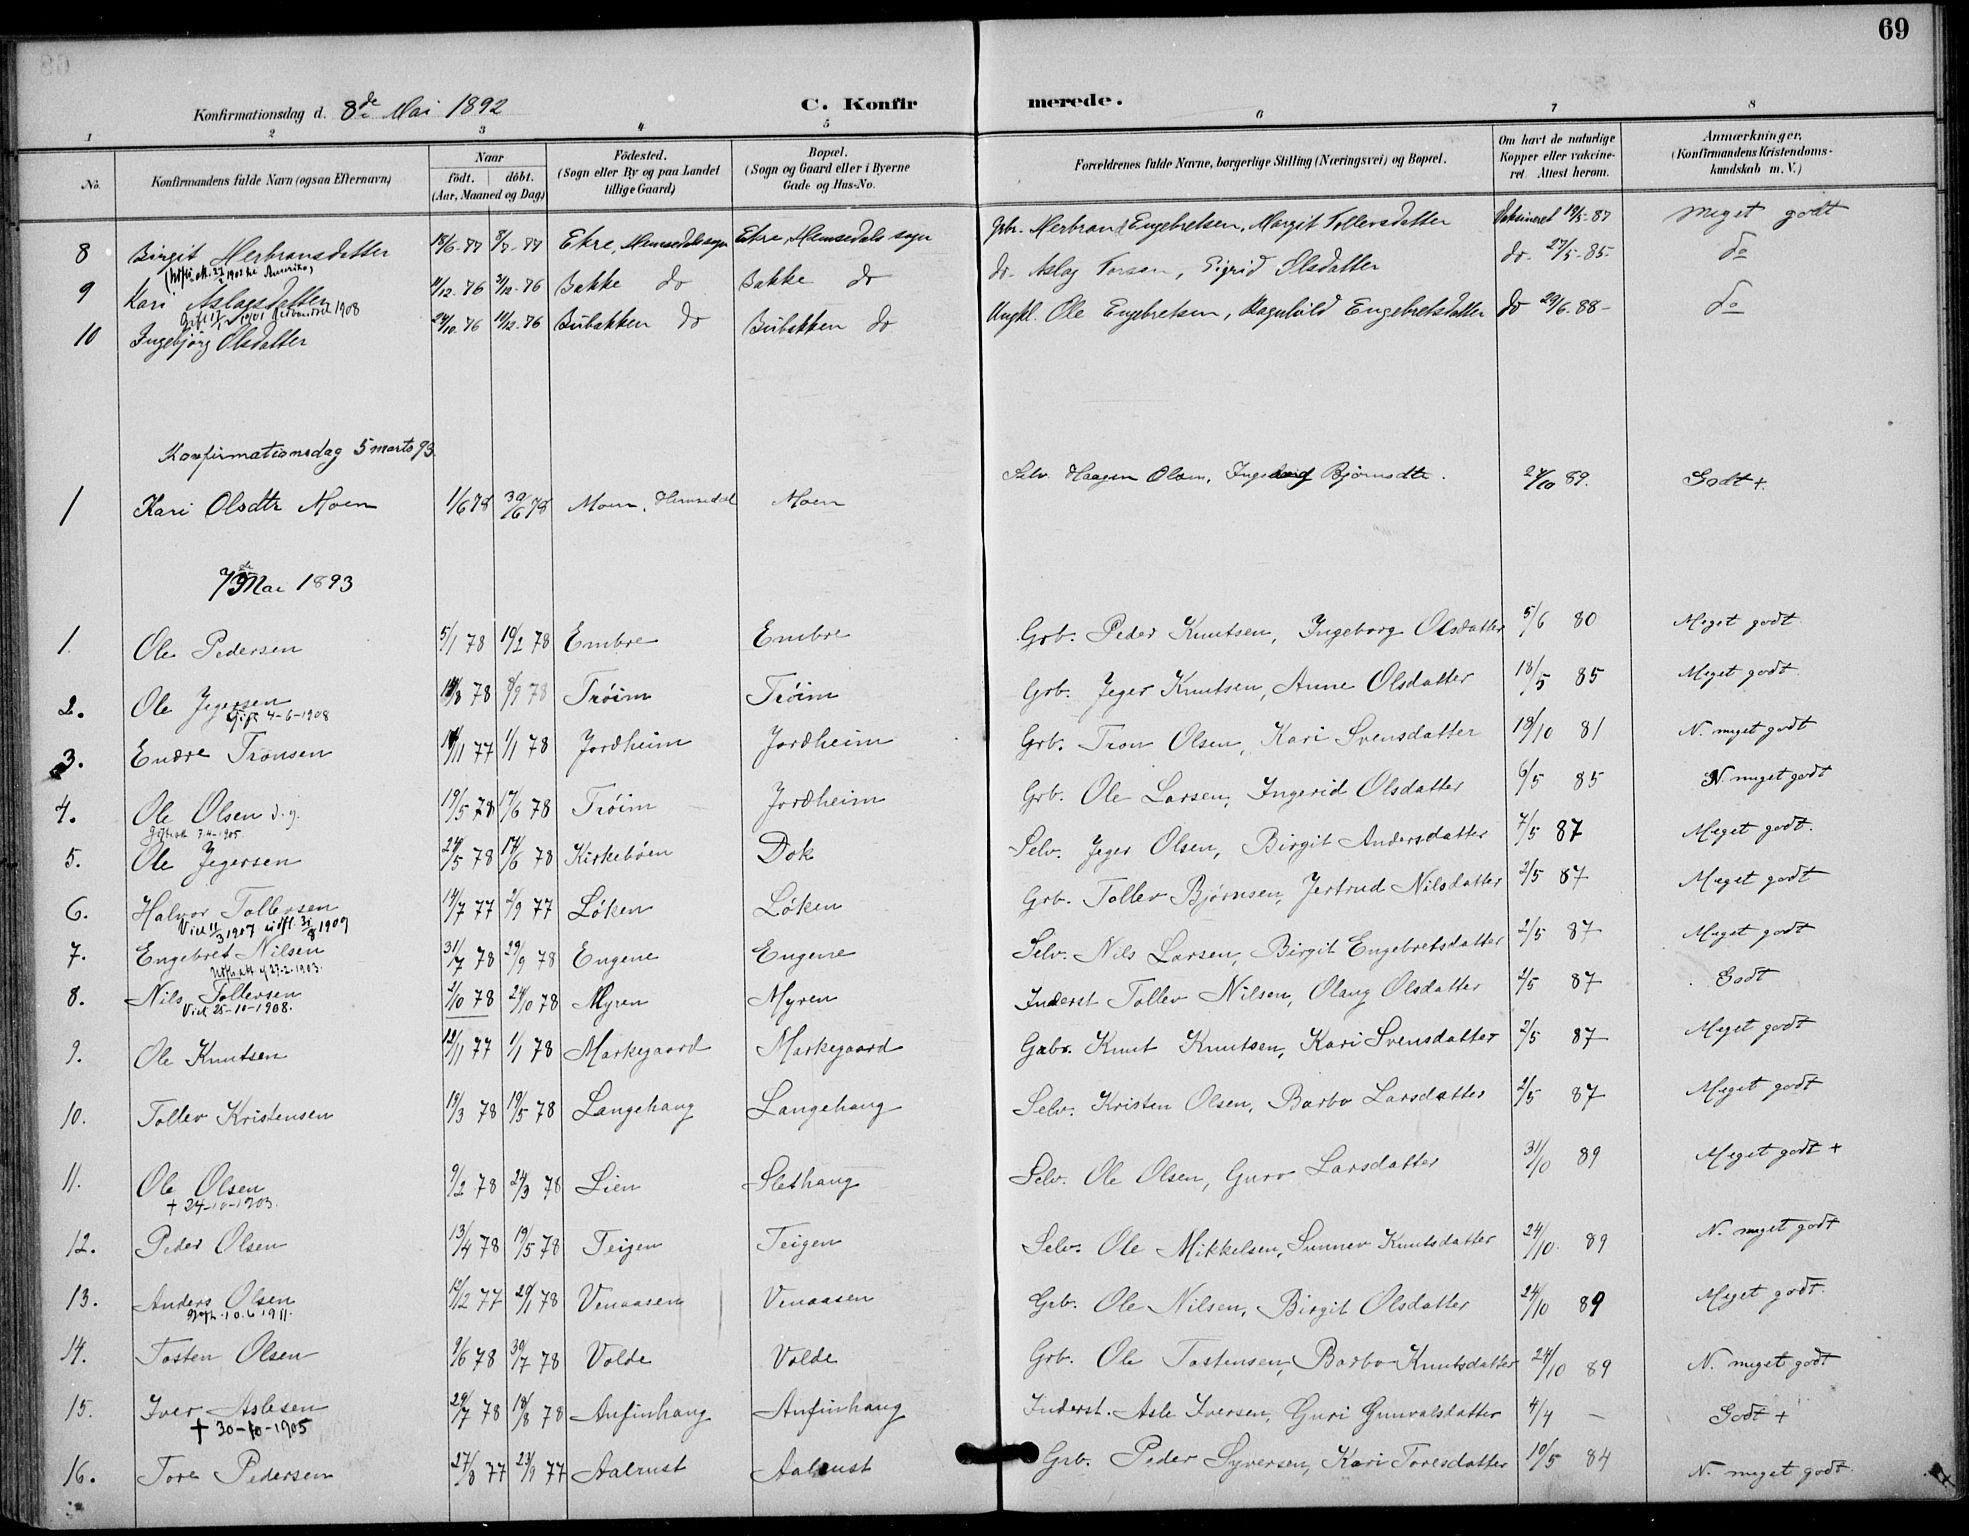 69
Konfirmationsdag d. 8de Mai 1892 C. Konfirmerede.
1 2 3 4 5 6 7 8
No. Konfirmandens fulde Navn (ogsaa Efternavn) Naar født. døbt. (Aar, Maaned og Dag) Fødested. (Sogn eller By og paa Landet tillige Gaard) Bopæl. (Sogn og Gaard eller i Byerne Gade og Hus-No. Forældrenes fulde Navne, borgerlige Stilling (Næringsvei) og Bopæl. Om havt de naturlige Kopper eller vakcineret. Attest herom. Anmærkninger. (Konfirmandens Kristendomskundskab m. V.)
8 Birgit Herbransdatter 18/6-77 8/7-77 Ekre, Hemsedals sogn Ekre, Hemsedals sogn Gbr. Herbrand Engebretsen, Margit Tollevsdatter Vaksineret 19/5-87 Meget godt
9 Kari Aslagsdatter 4/12-76 31/12-76 Bakke do Bakke do do. Aslag Torsen, Sigrid Olsdatter do. 27/5-85- do
10 Ingebjørg Olsdatter 24/10-76 10/12-76 Bubakken do Bubakken do Ungkl. Ole Engebretsen, Ragnhild Engebretsdatter do 29/6-88- do
Konfirmationsdag 5 marts 93
1 Kari Olsdtr Moen 1/6 78 30/6 78 Moen, Hemsedal Moen Selv. Haagen Olsen, Ingeborg Bjørnsdtr. 24/10 89. Godt +
7de Mai 1893
1. Ole Pedersen 5/1 78 10/2 78 Embre Embre Grb. Peder Knutsen, Ingeborg Olsdatter 5/6 80 Meget godt
2. Ole Jegersen 14/8 78 8/9 78 Trøim Trøim Grb. Jeger Knutsen, Anne Olsdatter 18/5 85 Meget godt
Gift 4-6-1908
3. Endre Tronsen 14/11 77 1/1 78 Jordheim Jordheim Grb. Tron Olsen, Kari Svensdatter 18/10 81 N. meget godt
4. Ole Olsen d.y. 19/5 78 17/6 78 Trøim Jordheim Grb. Ole Larsen, Ingerid Olsdatter 6/5 85 N. meget godt
5. Ole Jegersen 24/5 78 17/6 78 Kirkebøen Dok Selv. Jeger Olsen, Birgit Andersdatter 7/5 87 Meget godt.
6. Halvor Tollevsen 14/7 77 2/9 77 Løken Løken Grb. Tollev Bjørnsen, Jertrud Nilsdatter 2/5 87 Meget godt
Viet 11/3 1907 udfl. 31/8 1909
7. Engebret Nilsen 31/7 78 29/9 78 Eugene Eugene Selv. Nils Larsen, Birgit Engebretsdatter 2/5 87 Meget godt
8. Nils Tollevsen 2/10 78 24/10 78 Myren Myren Inderst Tollev Nilsen, Olaug Olsdatter 2/5 87 Godt
Viet 25-10-1908.
9. Ole Knutsen 12/11 77 1/1 78 Markegaard Markegaard Gabr. Knut Knutsen, Kari Svensdatter 2/5 87 Meget godt
10. Tollev Kristensen 19/3 78 19/5 78 Langehaug Langehaug Selv. Kristen Olsen, Barbo Larsdatter 2/5 87 Meget godt
11. Ole Olsen 9/2 78 24/3 78 Lien Slethaug Selv. Ole Olsen, Guro Larsdatter 31/10 89 Meget godt +
† 24-10-1903.
12. Peder Olsen 13/4 78 19/5 78 Teigen Teigen Selv. Ole Mikkelsen, Sunnev Knutsdatter 24/10. 89 N. meget godt
13. Anders Olsen 12/12 77 20/1 78 Venaasen Venaasen Grb. Ole Nilsen, Birgit Olsdatter 24/10 89 Meget godt.
Gift. 10.6.1911.
14. Tosten Olsen 9/6 78 30/7 78 Volde Volde Grb. Ole Tostensen, Barbo Knutsdatter 24/10 89 N. meget godt
15. Iver Aslesen 29/7 78 18/8 78 Anfinhaug Anfinhaug Inderst. Asle Iversen, Guri Gunvalsdatter 4/4 — Godt +
† 30-10-1905
16. Tore Pedersen 27/8 77 23/9 77 Aalrust Aalrust Grb. Peder Syversen, Kari Toresdatter 10/5 84 N. meget godt